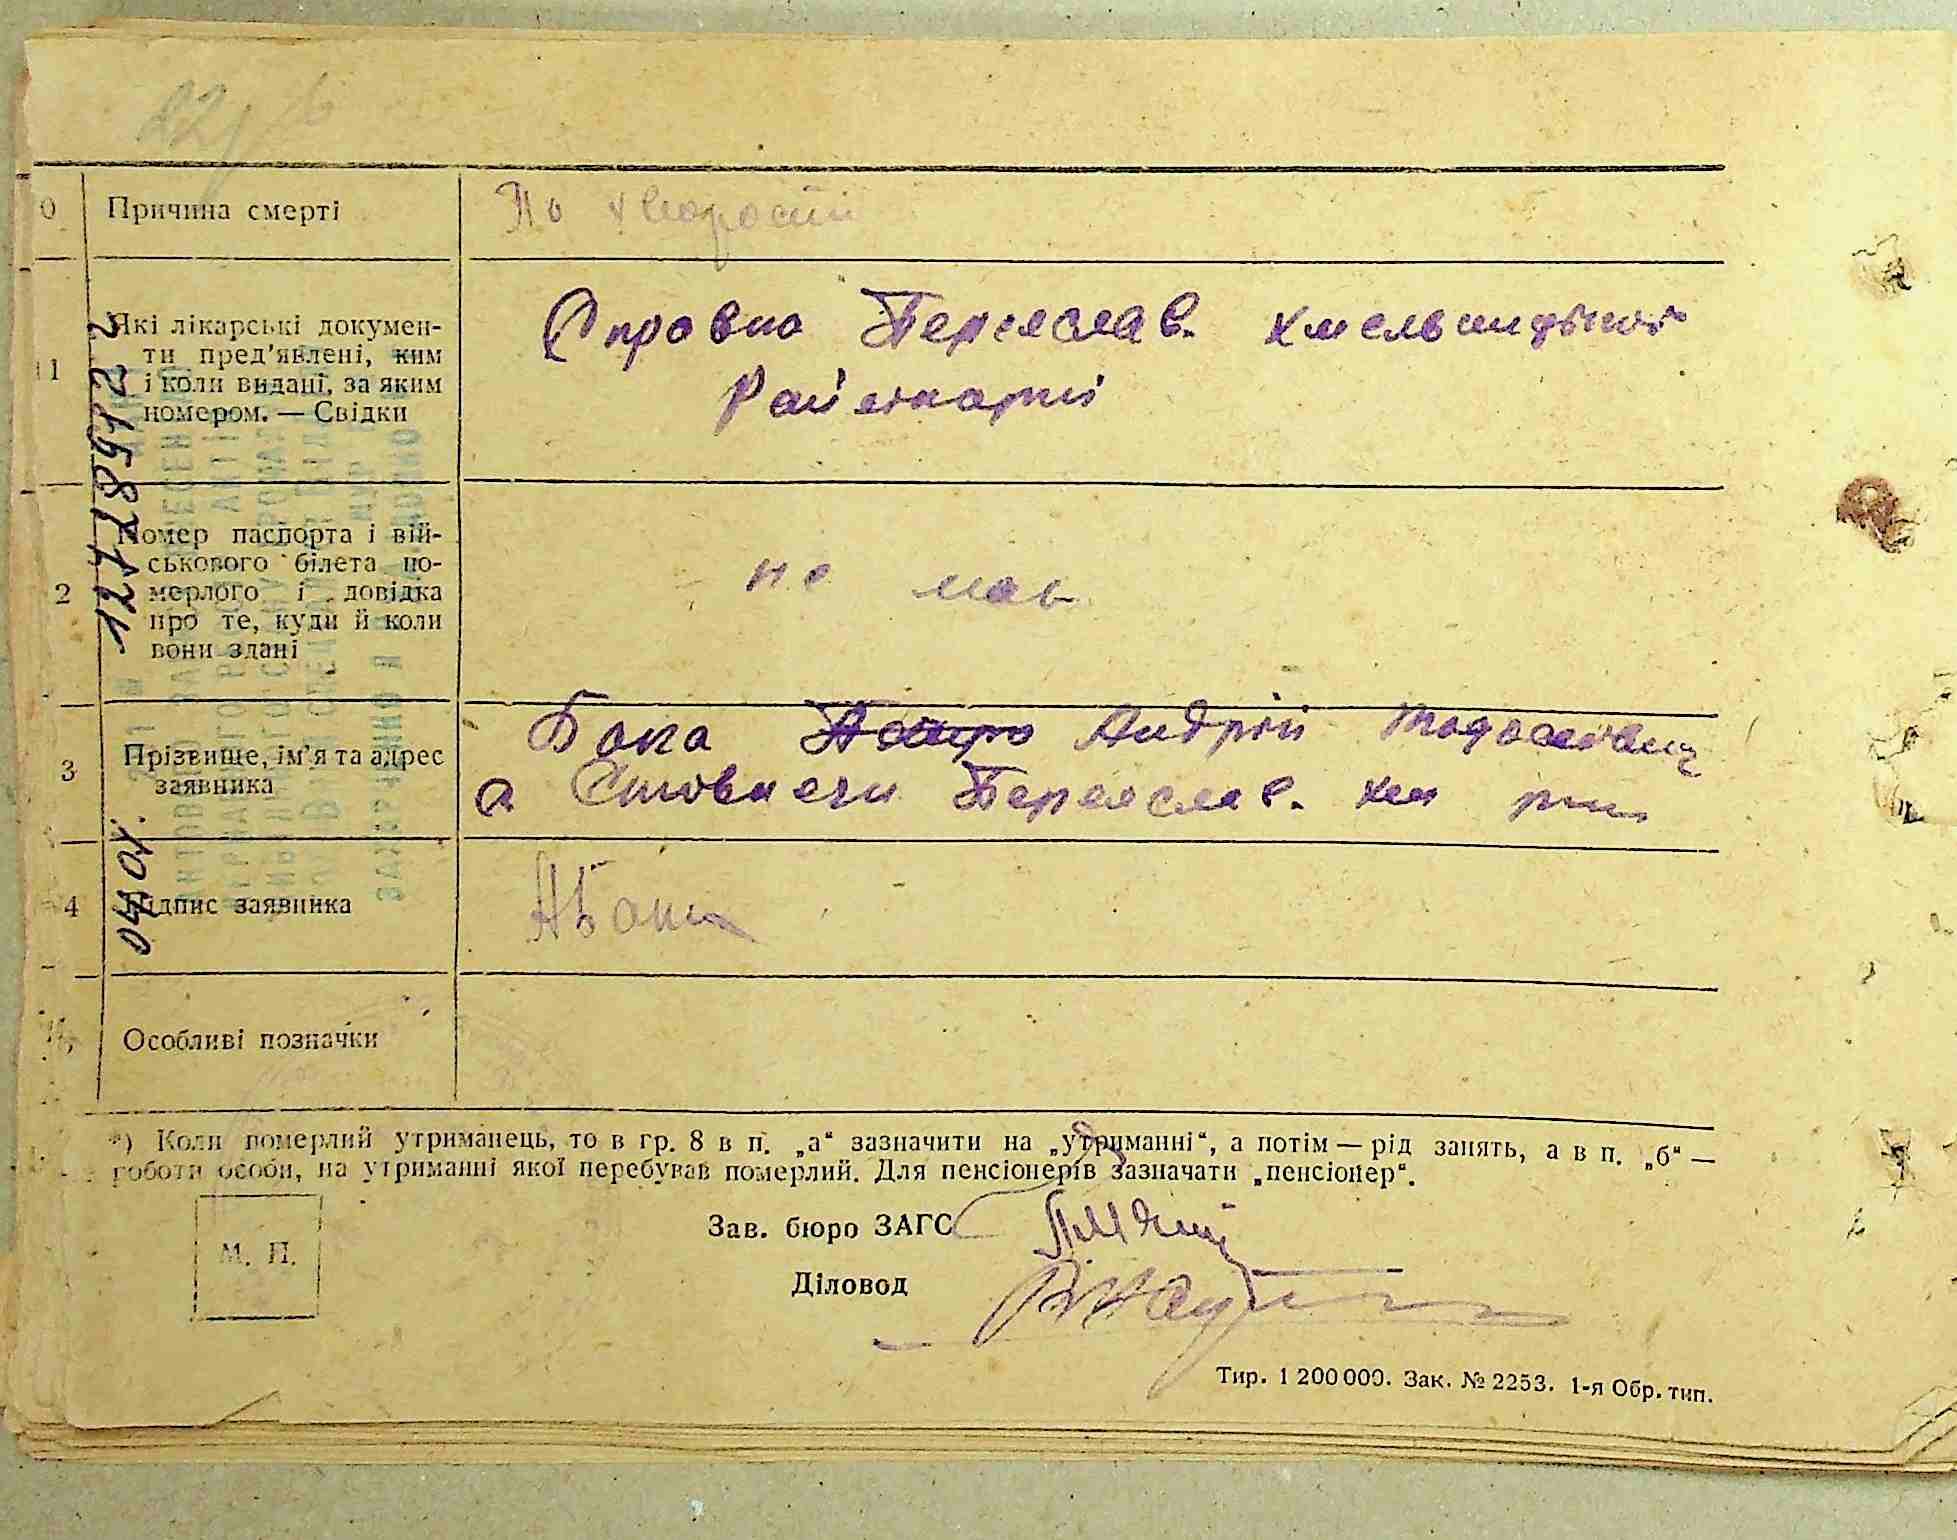 22
0 Причина смерті По хворості
11 Які лікарські докумен-
ти пред'явлені, ким
і коли видані, за яким
номером. — Свідки
Справка Переяслав. Хмельницької
Райлікарні
2 Номер паспорта і вій-
ськового білета по-
мерлого і довідка
про те, куди й коли
вони здані
не має
3 Прізвище, ім'я та адрес
заявника
Бака Андрій Тодосійович
с Стовпяги Переяслав. Хм р-н
4 Підпис заявника АБака
Особливі позначки
*) Коли померлий утриманець, то в гр. 8 в п. „а“ зазначити на „утриманні“, а потім — рід занять, а в п. „б“ —
роботи особи, на утриманні якої перебував померлий. Для пенсіонерів зазначати „пенсіонер“.
М. П.
Зав. бюро ЗАГС
Діловод
Тир. 1 200 000. Зак. № 2253. 1-я Обр. тип.